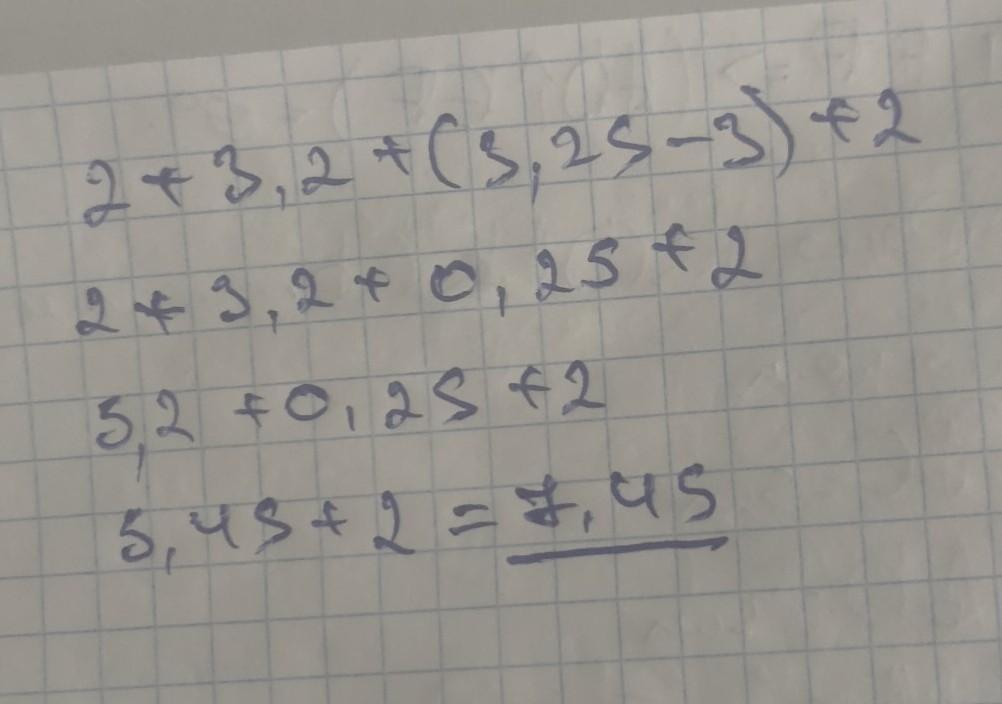 2 + 3,2 + (3,25 - 3) + 2
2 + 3,2 + 0,25 + 2
5,2 + 0,25 + 2
5,45 + 2 = 7,45